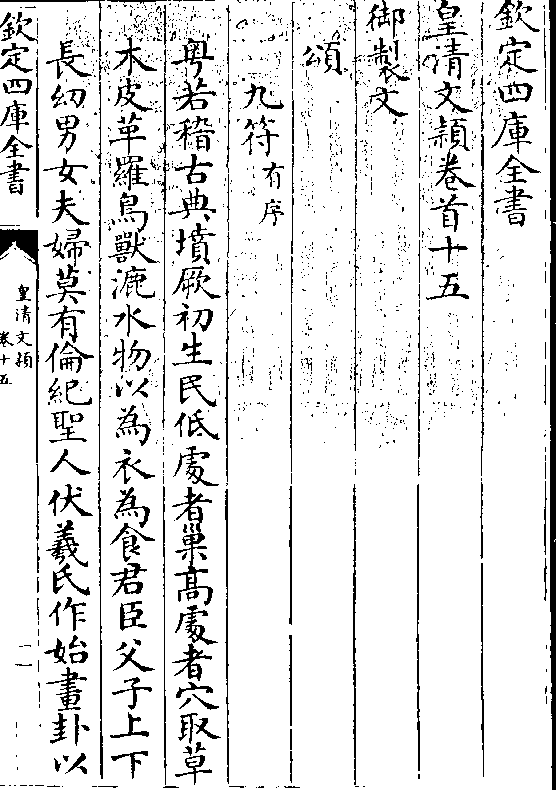 欽定四庫全書
皇清文穎卷首十五
御製文
頌
九符有序
粤若稽古典墳厥初生民低處者巢高處者穴取草
木皮革羅鳥獸漉水物以為衣為食君臣父子上下
長幼男女夫婦莫有倫紀聖人伏羲氏作始畫卦以
欽定四庫全書
皇清文穎
卷十五
一